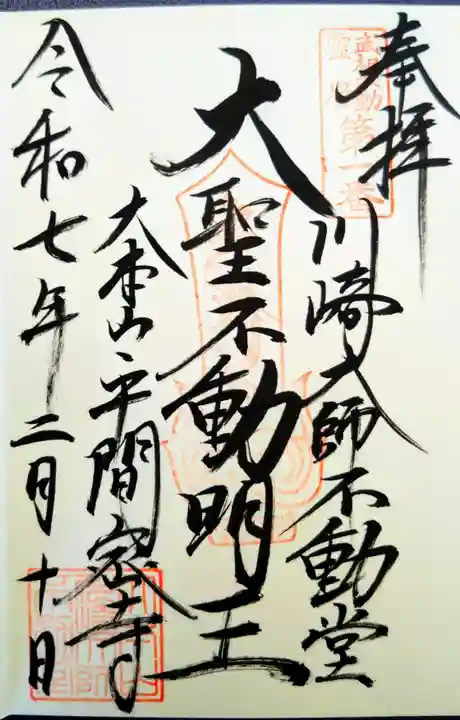 奉拝
武相不動
霊場
第一番
川崎大師不動堂
大聖不動明王
大本山平間寺
令和七年二月十日